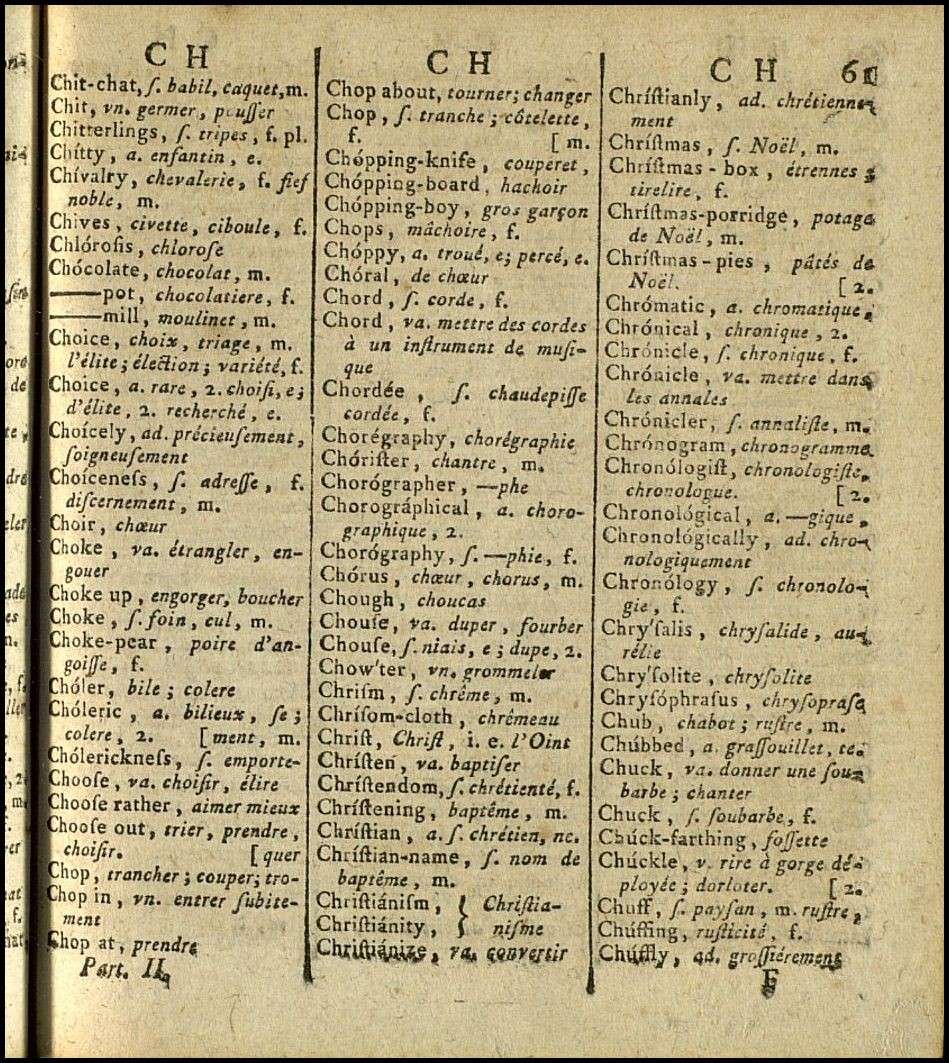 C H
Chit-chat, ſ. babil, caquet, m.
Chit, vn. germer, pouſſer
Chitterlings, ſ. tripes, f. pl.
Chítty, a. enfantin, e.
Chívalry, chevalerie, f. fief
noble, m.
Chives, civette, ciboule, f.
Chlóroſis, chloroſe
Chócolate, chocolat, m.
——pot, chocolatiere, f.
——mill, moulinet, m.
Choice, choix, triage, m.
l'élite; élection; variété, f.
Choice, a. rare, 2. choiſi, e;
d'élite, 2. recherché, e.
Choícely, ad. précieuſement,
ſoigneuſement
Choíceneſs, ſ. adreſſe, f.
diſcernement, m.
Choir, chœur
Choke, va. étrangler, en-
gouer
Choke up, engorger, boucher
Choke, ſ. foin, cul, m.
Choke-pear, poire d'an-
goiſſe, f.
Chóler, bile; colere
Chóleric, a. bilieux, ſe;
colere, 2. [ment, m.
Chólerickneſs, ſ. emporte-
Chooſe, va. choiſir, élire
Chooſe rather, aimer mieux
Chooſe out, trier, prendre,
choiſir. [quer
Chop, trancher; couper; tro-
Chop in, vn. entrer ſubite-
ment
Chop at, prendre
Part. II.
C H
Chop about, tourner; changer
Chop, ſ. tranche; côtelette,
f. [m.
Chópping-knife, couperet,
Chópping-board, hachoir
Chópping-boy, gros garçon
Chops, mâchoire, f.
Chóppy, a. troué, e; percé, e.
Chóral, de chœur
Chord, ſ. corde, f.
Chord, va. mettre des cordes
à un inſtrument de muſi-
que
Chordée, ſ. chaudepiſſe
cordée, f.
Chorégraphy, chorégraphie
Chóriſter, chantre, m.
Chorógrapher, —phe
Chorográphical, a. choro-
graphique, 2.
Chorógraphy, ſ. —phie, f.
Chórus, chœur, chorus, m.
Chough, choucas
Chouſe, va. duper, fourber
Chouſe, ſ. niais, e; dupe, 2.
Chow'ter, vn. grommeler
Chriſm, ſ. chrême, m.
Chríſom-cloth, chrêmeau
Chriſt, Chriſt, i. e. l'Oint
Chríſten, va. baptiſer
Chríſtendom, ſ. chrétienté, f.
Chríſtening, baptême, m.
Chríſtian, a. ſ. chrétien, ne.
Chríſtian-name, ſ. nom de
baptême, m.
Chriſtiániſm, } Chriſtia-
Chriſtiánity, } niſme
Chriſtiánize, va. convertir
C H 65
Chríſtianly, ad. chrétienne-
ment
Chríſtmas, ſ. Noël, m.
Chríſtmas - box, étrennes;
tirelire, f.
Chríſtmas-porridge, potage
de Noël, m.
Chríſtmas - pies, pâtés de
Noël. [2.
Chrómatic, a. chromatique,
Chrónical, chronique, 2.
Chrónicle, ſ. chronique, f.
Chrónicle, va. mettre dans
les annales
Chrónicler, ſ. annaliſte, m.
Chrónogram, chronogramme
Chronólogiſt, chronologiſte,
chronologue. [2.
Chronológical, a. —gique,
Chronológically, ad. chro-
nologiquement
Chronólogy, ſ. chronolo-
gie, f.
Chry'ſalis, chryſalide, au-
rélie
Chry'ſolite, chryſolite
Chryſóphraſus, chryſopraſe
Chub, chabot; ruſtre, m.
Chúbbed, a. graſſouillet, te.
Chuck, va. donner une ſou-
barbe; chanter
Chuck, ſ. ſoubarbe, f.
Chúck-farthing, foſſette
Chúckle, v. rire à gorge dé-
ployée; dorloter. [2.
Chuff, ſ. payſan, m. ruſtre,
Chúffing, ruſticité, f.
Chúffly, ad. groſſiérement
F